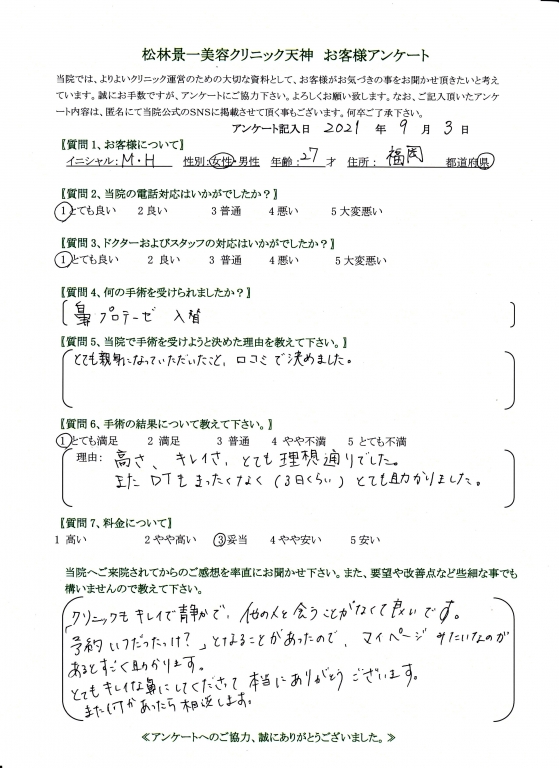 松林景一美容クリニック天神 お客様アンケート
当院では、よりよいクリニック運営のための大切な資料として、お客様がお気づきの事をお聞かせ頂きたいと考え
ています。誠にお手数ですが、アンケートにご協力下さい。よろしくお願い致します。なお、ご記入頂いたアンケ
ート内容は、匿名にて当院公式のSNSに掲載させて頂く事もございます。何卒ご了承下さい。
アンケート記入日 2021 年 9 月 3 日
〖質問1、お客様について〗
イニシャル: M・H 性別:女性・男性 年齢:27 才 住所: 福岡 都道府県
〖質問2、当院の電話対応はいかがでしたか?〗
1とても良い 2良い 3普通 4悪い 5大変悪い
〖質問3、ドクターおよびスタッフの対応はいかがでしたか?〗
1とても良い 2 良い 3 普通 4悪い 5大変悪い
〖質問4、何の手術を受けられましたか?〗
鼻プロテーゼ 入替
〖質問5、当院で手術を受けようと決めた理由を教えて下さい。〗
とても親身になっていただいたこと、口コミで決めました。
〖質問6、手術の結果について教えて下さい。〗
1とても満足 2 満足 3 普通 4 やや不満 5 とても不満
理由: 高さ、キレイさ、とても理想通りでした。
また DTもまったくなく(3日くらい)とても助かりました。
〖質問7、料金について〗
1 高い 2やや高い 3妥当 4やや安い 5安い
当院へご来院されてからのご感想を率直にお聞かせ下さい。また、要望や改善点など些細な事でも
構いませんので教えて下さい。
クリニックもキレイで静かで、他の人と会うことがなくて良いです。
「予約いつだったっけ?」となることがあったので、マイページみたいなのが
あるとすごく助かります。
とてもキレイな鼻にしてくださって本当にありがとうございます。
また何かあったら相談します。
≪アンケートへのご協力、誠にありがとうございました。≫